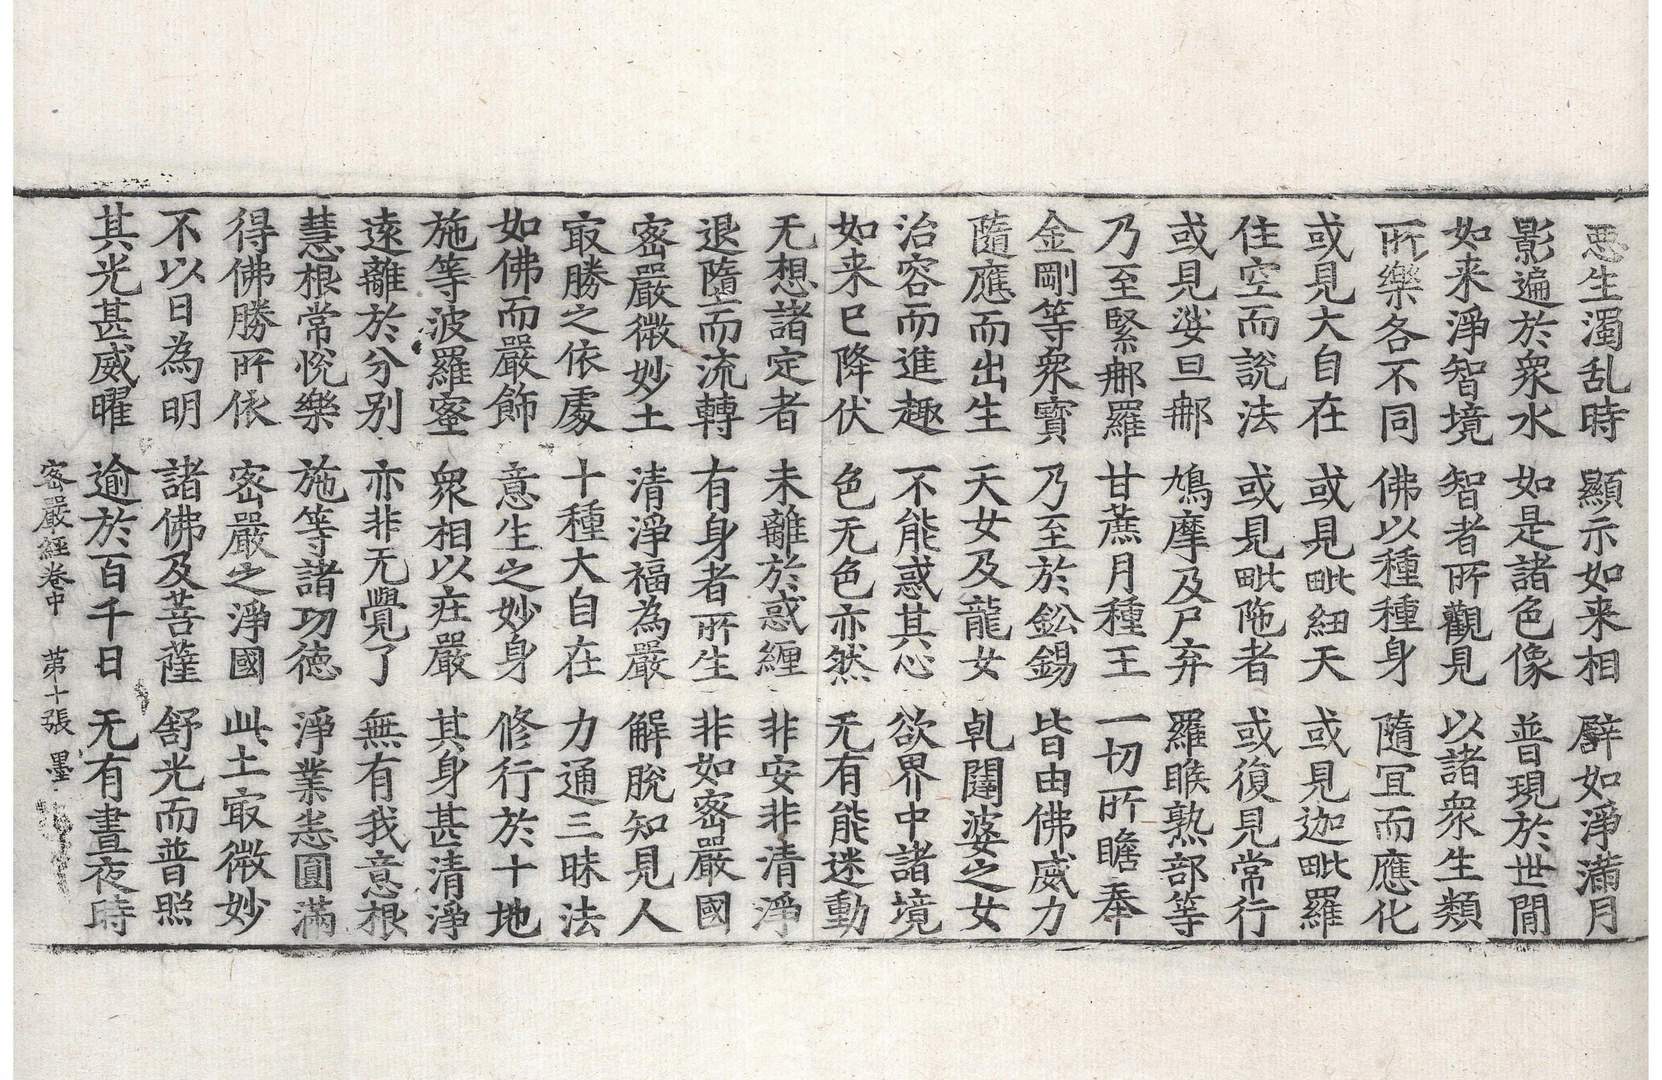 惡生濁乱時　顯示如来相　譬如淨滿月
影遍於衆水　如是諸色像　普現於世間
如来淨智境　智者所觀見　以諸衆生類
所樂各不同　佛以種種身　隨冝而應化
或見大自在　或見毗紐天　或見迦毗羅
住空而說法　或見毗陁者　或復見常行
或見娑旦那　鳩摩及尸弃　羅睺熟部等
乃至緊那羅　甘蔗月種王　一切所瞻奉
金剛等衆寶　乃至於鈆錫　皆由佛威力
隨應而出生　天女及龍女　乹闥婆之女
治容而進趣　不能惑其心　欲界中諸境
如来已降伏　色无色亦然　无有能迷動
无想諸定者　未離於惑纏　非安非清淨
退墮而流轉　有身者所生　非如密嚴國
密嚴微妙土　清淨福為嚴　解脫知見人
冣勝之依處　十種大自在　力通三昧法
如佛而嚴飾　意生之妙身　修行於十地
施等波羅蜜　衆相以庄嚴　其身甚清淨
遠離於分别　亦非无覺了　無有我意根
慧根常悅樂　施等諸功德　淨業悉圓滿
得佛勝所依　密嚴之淨國　此土冣微妙
不以日為明　諸佛及菩薩　舒光而普照
其光甚威曜　逾於百千日　无有晝夜時
密嚴經卷中　第十張　墨